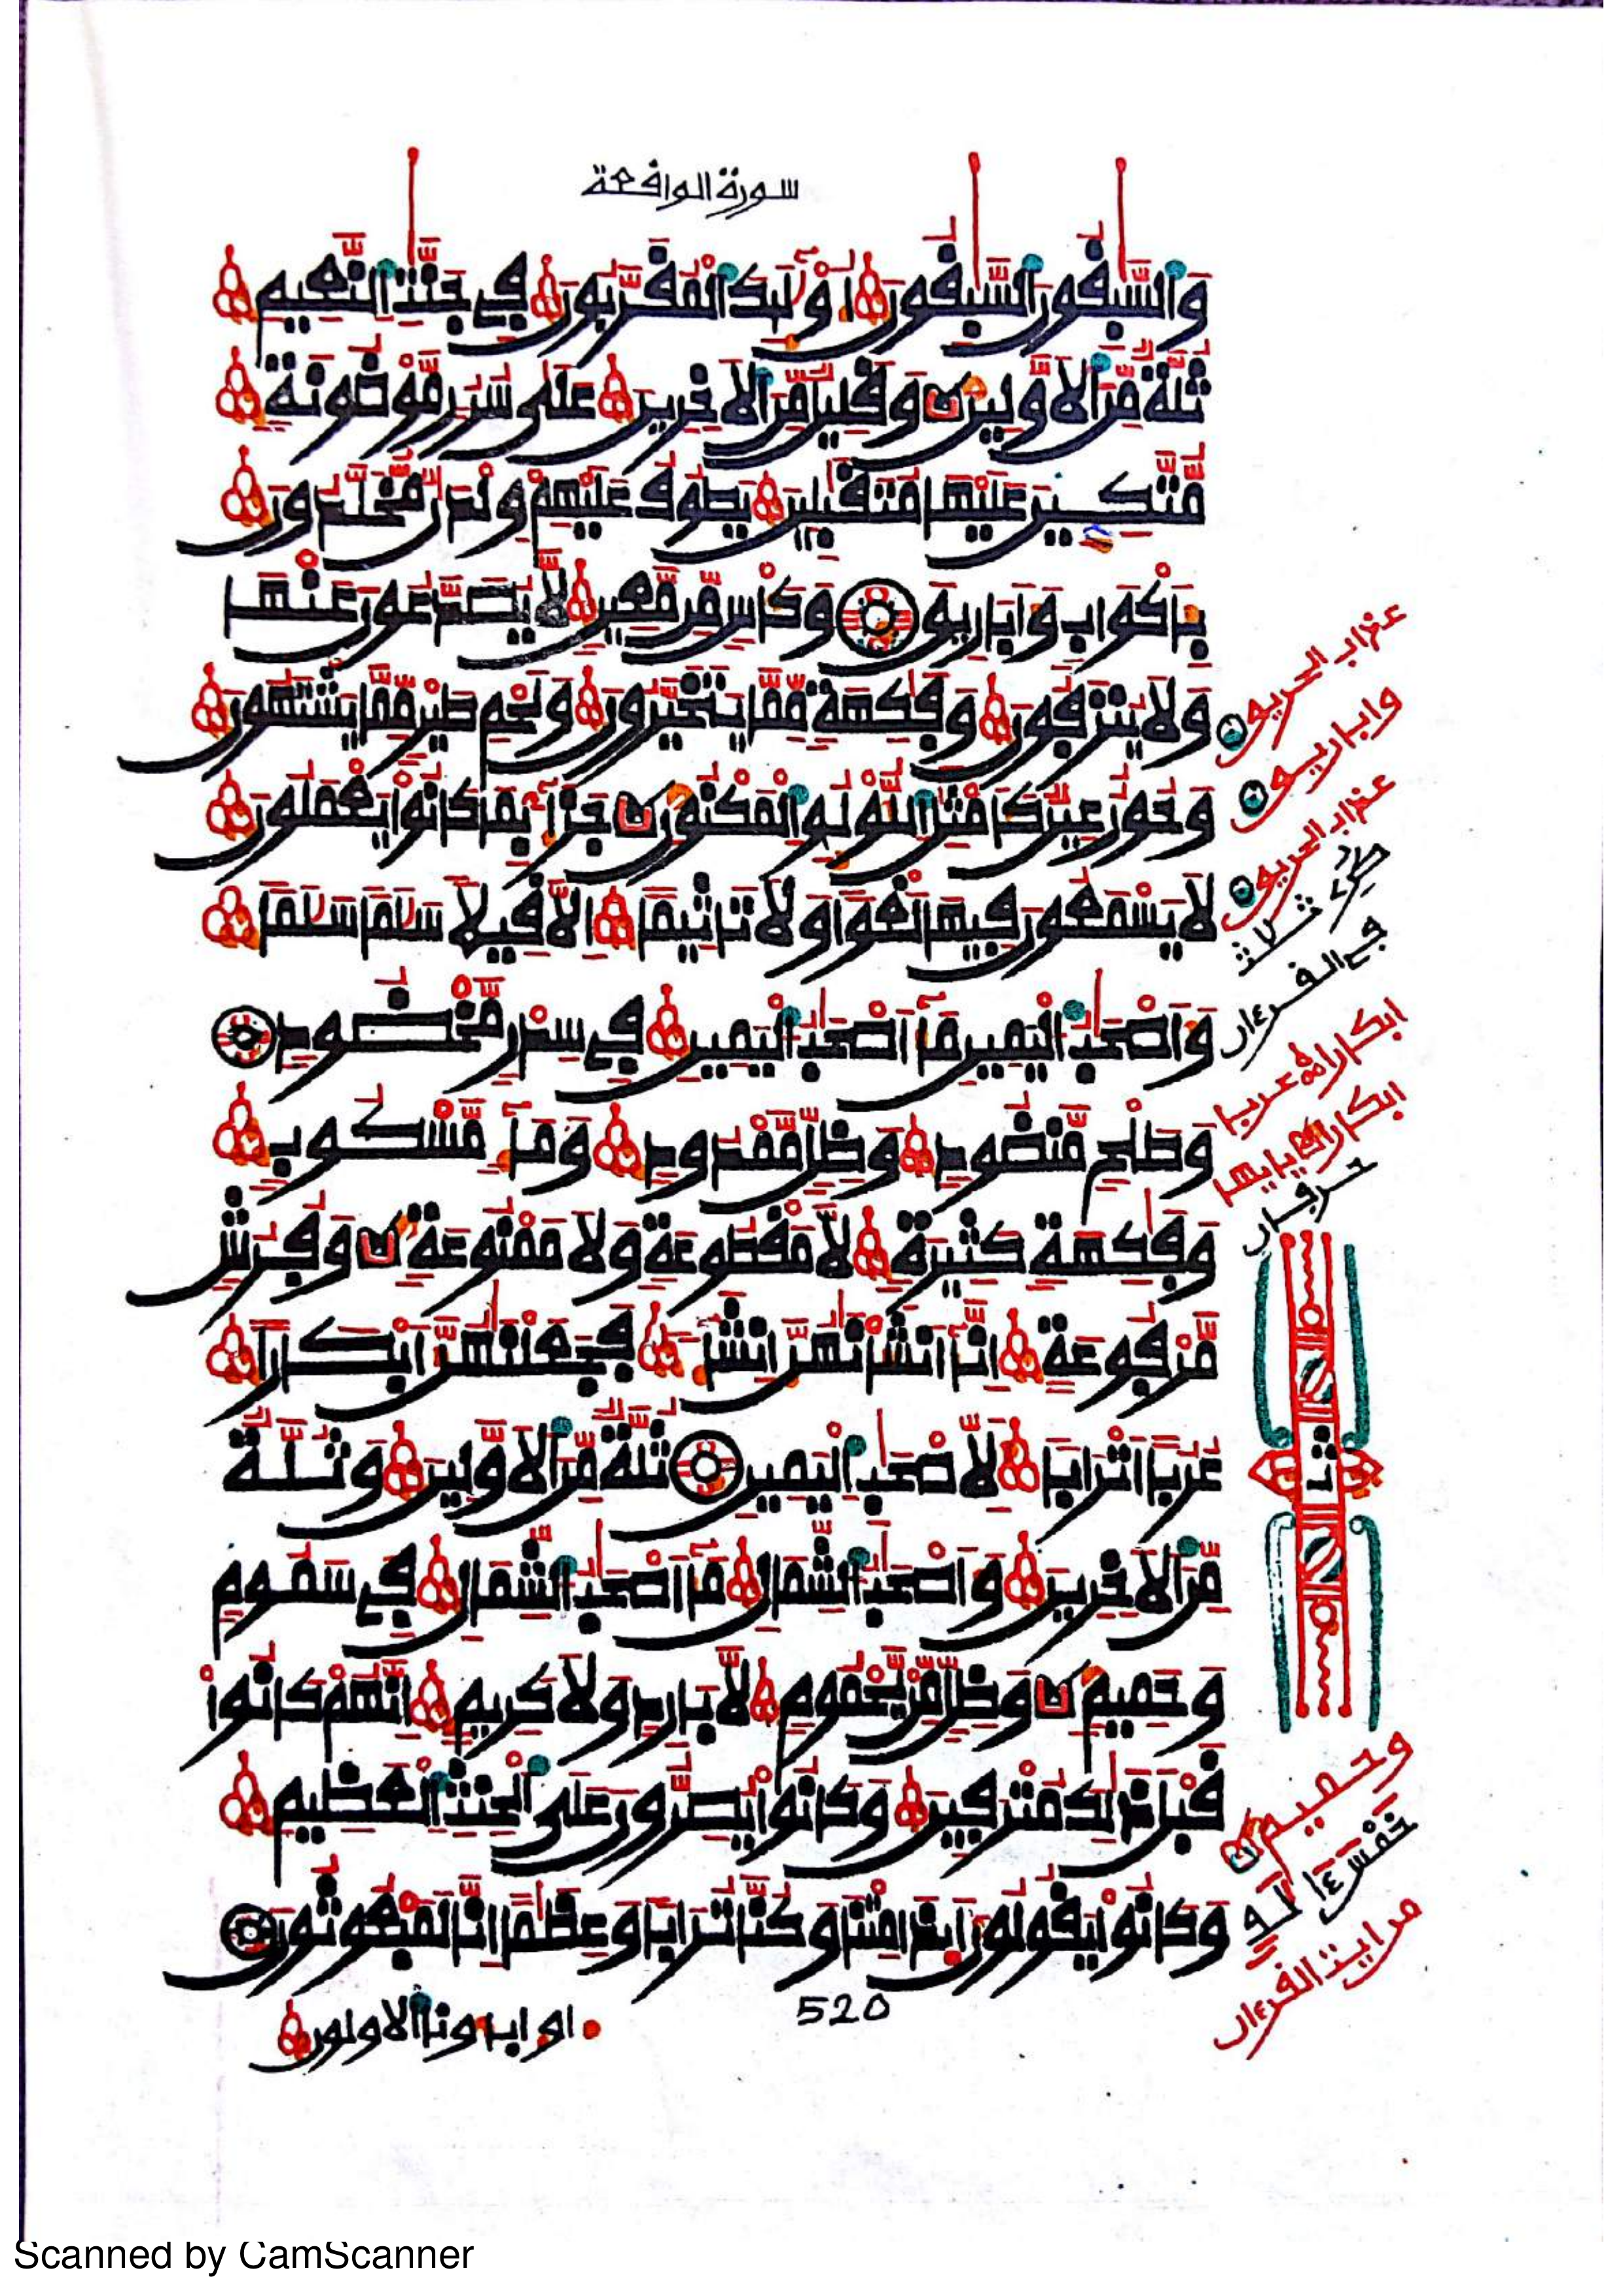 سورة الوافعة
وَالسَّٰبِفُونَ السَّٰبِفُونَ أُوْلَٰٓئِكَ الْمُفَرَّبُونَ فِے جَنَّٰتِ النَّعِيمِ
ثُلَّةٌ مِّنَ الَاوَّلِينَ وَفَلِيلٌ مِّنَ الَاخِرِينَ عَلَىٰ سُرُرٍ مَّوْضُونَةٍ
مُّتَّكِـِٕينَ عَلَيْهَا مُتَفَٰبِلِينَ يَطُوفُ عَلَيْهِمْ وِلْدَٰنٌ مُّخَلَّدُونَ
بِأَكْوَابٍ وَأَبَارِيقَ وَكَأْسٍ مِّن مَّعِينٍ لَّا يُصَدَّعُونَ عَنْهَا
وَلَا يُنزَفُونَ وَفَٰكِهَةٍ مِّمَّا يَتَخَيَّرُونَ وَلَحْمِ طَيْرٍ مِّمَّا يَشْتَهُونَ
وَحُورٌ عِينٌ كَأَمْثَٰلِ اللُّؤْلُوِٕ الْمَكْنُونِ جَزَآءًۢ بِمَا كَانُواْ يَعْمَلُونَ
لَا يَسْمَعُونَ فِيهَا لَغْواً وَلَا تَاثِيماً الَّا فِيلاً سَلَٰماً سَلَٰماً
وَأَصْحَٰبُ الْيَمِينِ مَآ أَصْحَٰبُ الْيَمِينِ فِے سِدْرٍ مَّخْضُودٍ
وَطَلْحٍ مَّنضُودٍ وَظِلٍّ مَّمْدُودٍ وَمَآءٍ مَّسْكُوبٍ
وَفَٰكِهَةٍ كَثِيرَةٍ لَّا مَفْطُوعَةٍ وَلَا مَمْنُوعَةٍ وَفُرُشٍ
مَّرْفُوعَةٍ انَّآ أَنشَأْنَٰهُنَّ إِنشَآءً فَجَعَلْنَٰهُنَّ أَبْكَاراً
عُرُباً اَتْرَاباً لِّأَصْحَٰبِ الْيَمِينِ ثُلَّةٌ مِّنَ الَاوَّلِينَ وَثُلَّةٌ
مِّنَ الَاخِرِينَ وَأَصْحَٰبُ الشِّمَالِ مَآ أَصْحَٰبُ الشِّمَالِ فِے سَمُومٍ
وَحَمِيمٍ وَظِلٍّ مِّنْ يَحْمُومٍ لَّا بَارِدٍ وَلَا كَرِيمٍ انَّهُمْ كَانُواْ
فَبْلَ ذَٰلِكَ مُتْرَفِينَ وَكَانُواْ يُصِرُّونَ عَلَى الْحِنثِ الْعَظِيمِ
وَكَانُواْ يَفُولُونَ أَئِذَا مِتْنَا وَكُنَّا تُرَاباً وَعِظَٰماً انَّا لَمَبْعُوثُونَ
520
او اباونا الاولون
عذاب الحريق
واباريق
عذاب الحريق
في القرءان
ابكارا عربا
ابكارا
حرفان
ثمن
وحميم
خمس
من اية القرءان
Scanned by CamScanner